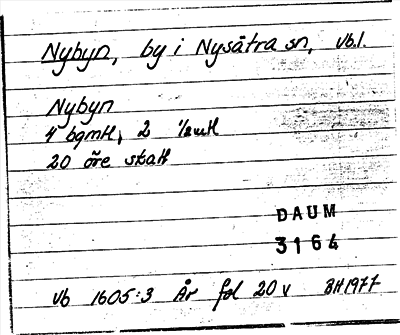 Nybyn, by i Nysätra sn, Vb.l.
Nybyn
4 bgmtl, 2 ½utl
20 öre skatt
DAUM
3164
Vb 1605:3 År fol 20 v BH 1977